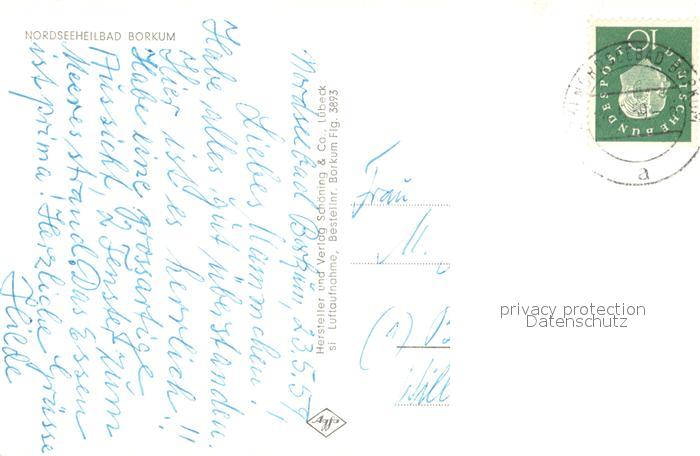 NORDSEEHEILBAD BORKUM
Nordseebad Borkum, 23.5.59
Liebes Mämmchen!
Habe alles gut überstanden.
Hier ist es herrlich!!
Habe eine grossartige
Aussicht, 2 Fenster zum
Meeresstrand. Das Essen
ist prima! Herzliche Grüsse
Heide
Hersteller und Verlag Schöning & Co., Lübeck
si Luftaufnahme, Bestellnr. Borkum Flg. 3893
Agfa
Frau
M.
(1)
DEUTSCHE BUNDESPOST
10
NORDSEEHEILBAD BORKUM
a
privacy protection
Datenschutz